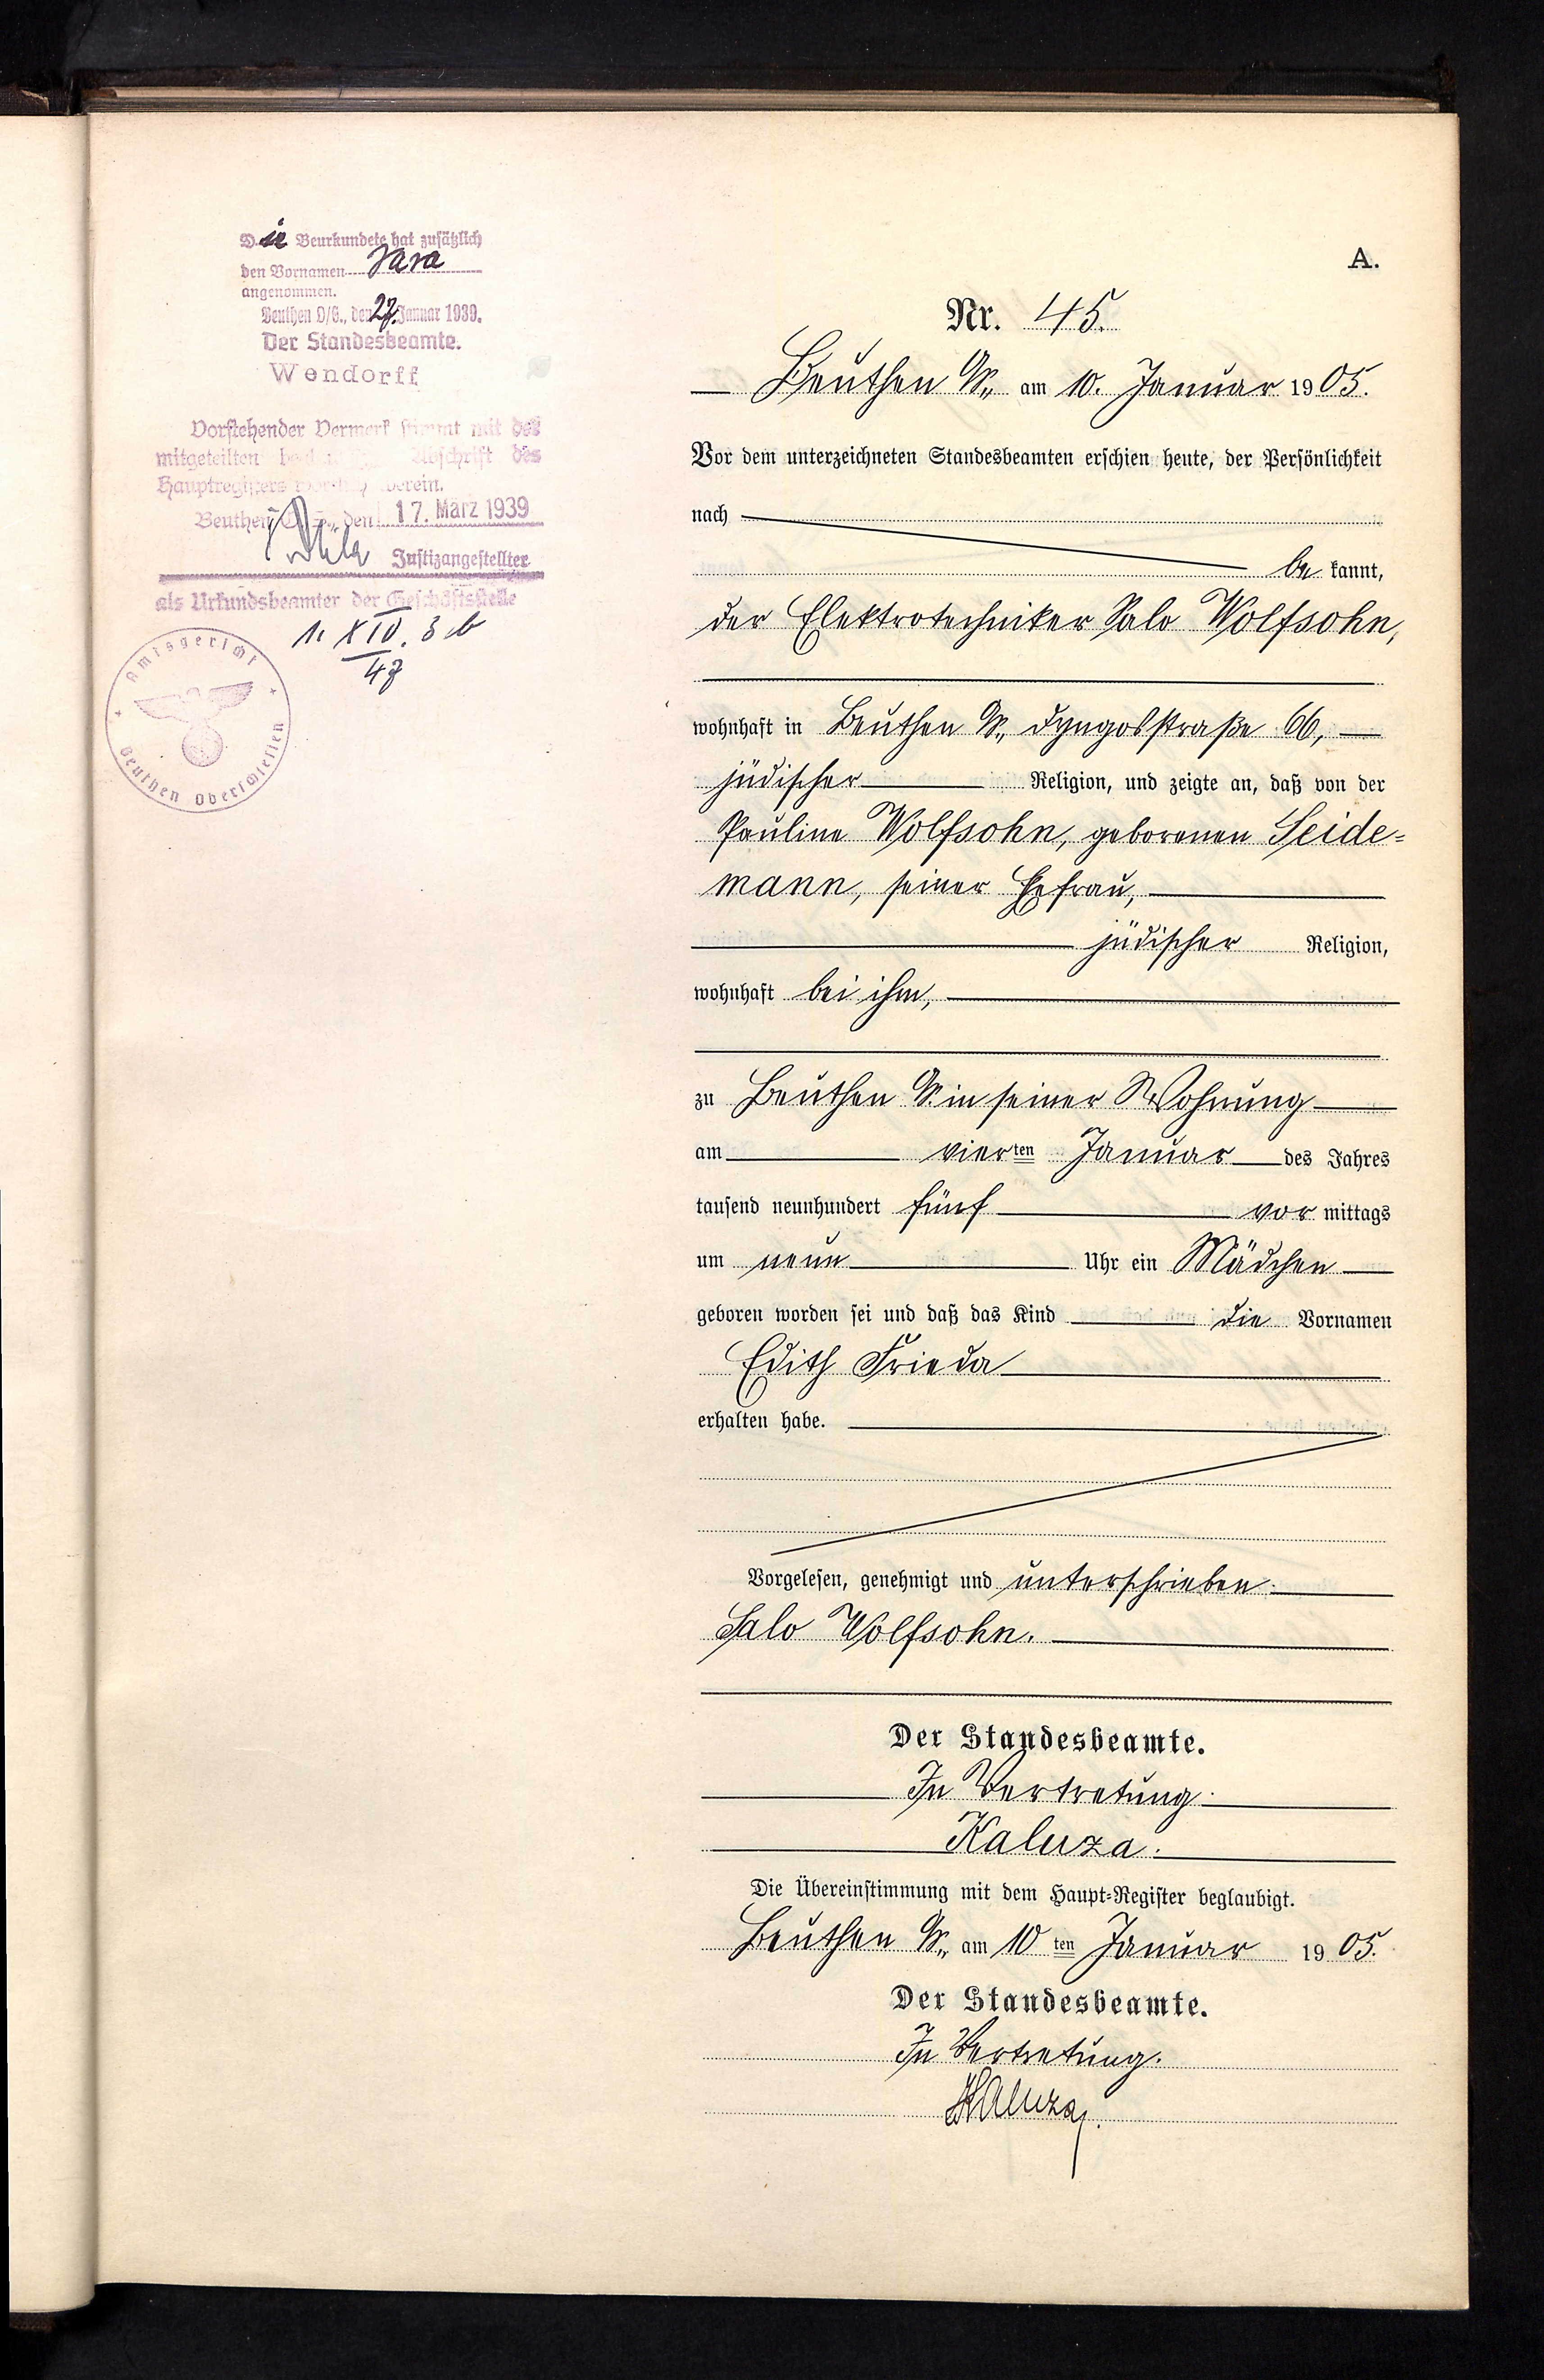 Die Beurkundete hat zusätzlich
den Vornamen Sara
angenommen.
Beuthen O/S., den 27. Januar 1939.
Der Standesbeamte.
Wendorff
Vorstehender Vermerk stimmt mit der
mitgeteilten Abschrift des
Hauptregisters überein.
Beuthen O.S., den 17. März 1939
Justizangestellter
als Urkundsbeamter der Geschäftsstelle
1. XIV. 3 b
47
Amtsgericht
Beuthen Oberschlesien
A.
Nr. 45.
Beuthen O/S., am 10. Januar 1905.
Vor dem unterzeichneten Standesbeamten erschien heute, der Persönlichkeit
nach
be kannt,
der Elektrotechniker Salo Wolfsohn,
wohnhaft in Beuthen O/S., Dyngosstraße 66,
jüdischer Religion, und zeigte an, daß von der
Pauline Wolfsohn, geborenen Seide=
mann, seiner Ehefrau,
jüdischer Religion,
wohnhaft bei ihm,
zu Beuthen O/S. in seiner Wohnung
am vierten Januar des Jahres
tausend neunhundert fünf vor mittags
um neun Uhr ein Mädchen
geboren worden sei und daß das Kind die Vornamen
Edith Frieda
erhalten habe.
Vorgelesen, genehmigt und unterschrieben.
Salo Wolfsohn.
Der Standesbeamte.
In Vertretung.
Kaluza.
Die Übereinstimmung mit dem Haupt=Register beglaubigt.
Beuthen O/S., am 10 ten Januar 1905.
Der Standesbeamte.
In Vertretung.
Kaluza.